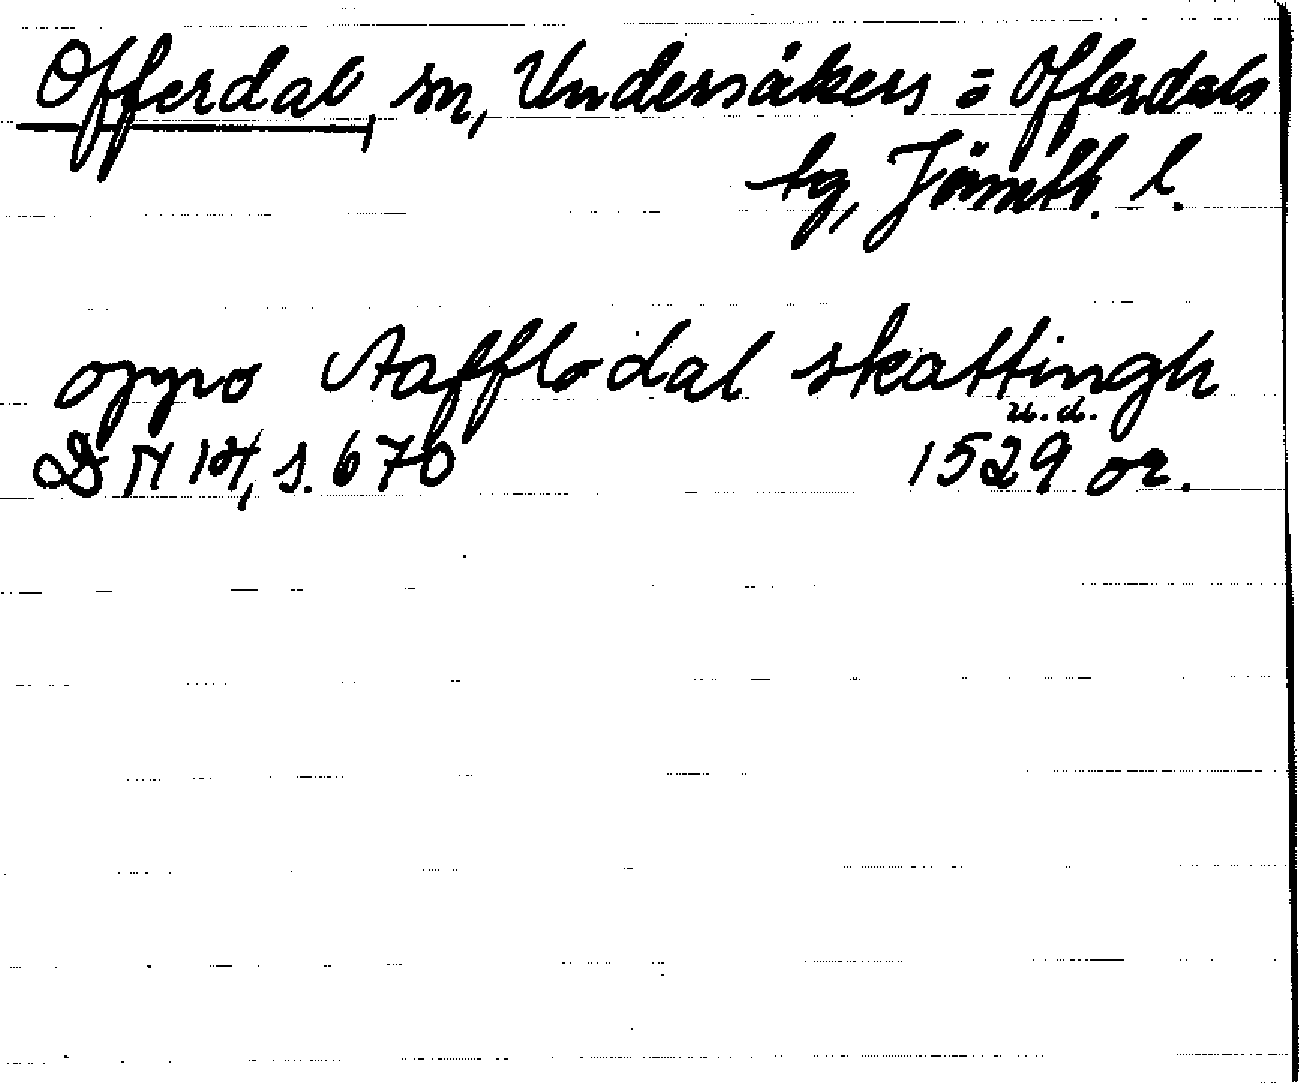 Offerdal sn, Undersåkers = Offerdals
tg, Jämtl. l.
oppo Aafflodal skattingh
u.d.
DN 14, s. 670 1529 or.